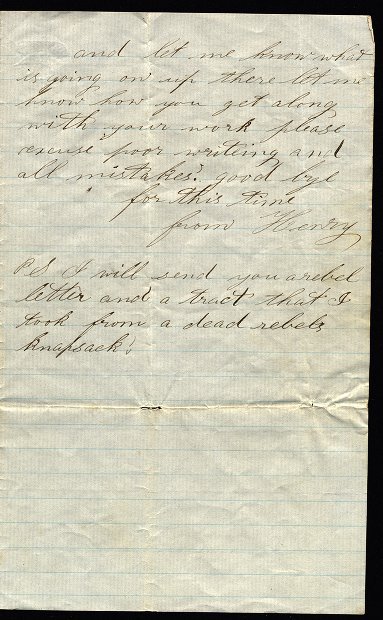 and let me know what
is going on up there let me
know how you get along
with your work please
excuse poor writing and
all mistakes. good bye
for this time
from Henry
PS I will send you a rebel
letter and a tract that I
took from a dead rebels
knapsack.